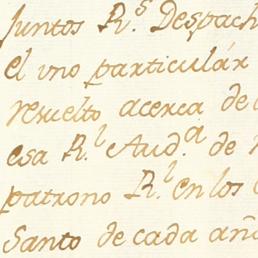 juntos R.s Despach
el uno particulár
resuelto acerca de
esa R.l Aud.a de
patrono R.l en los
Santo de cada añ